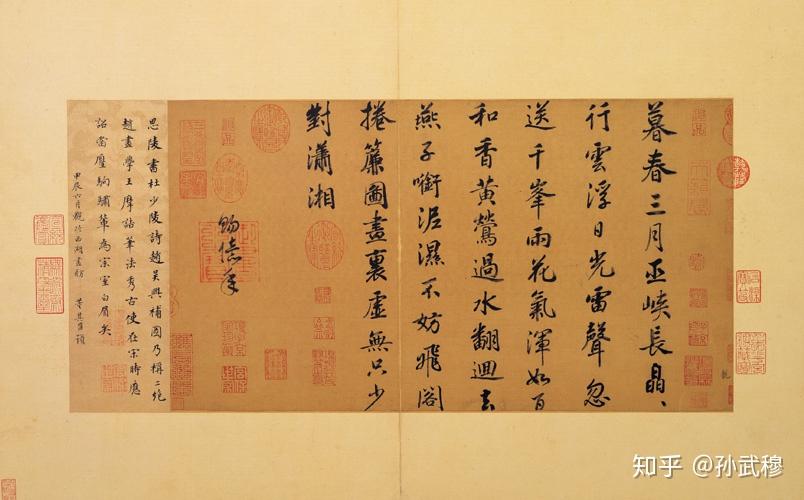 暮春三月巫峽長晶〻
行雲浮日光雷聲忽
送千峯雨花氣渾如百
和香黄鶯過水翻迴去
燕子啣泥濕不妨飛閣
捲簾圖畫裏虛無只少
對瀟湘
賜億年
思陵書杜少陵詩趙吳興補圖乃稱二絶
趙畫學王摩詰筆法秀古使在宋時應
詔當壓駒驌輩為宗室白眉矣
甲辰六月觀於西湖畫舫 董其昌題
知乎 @孙武穆